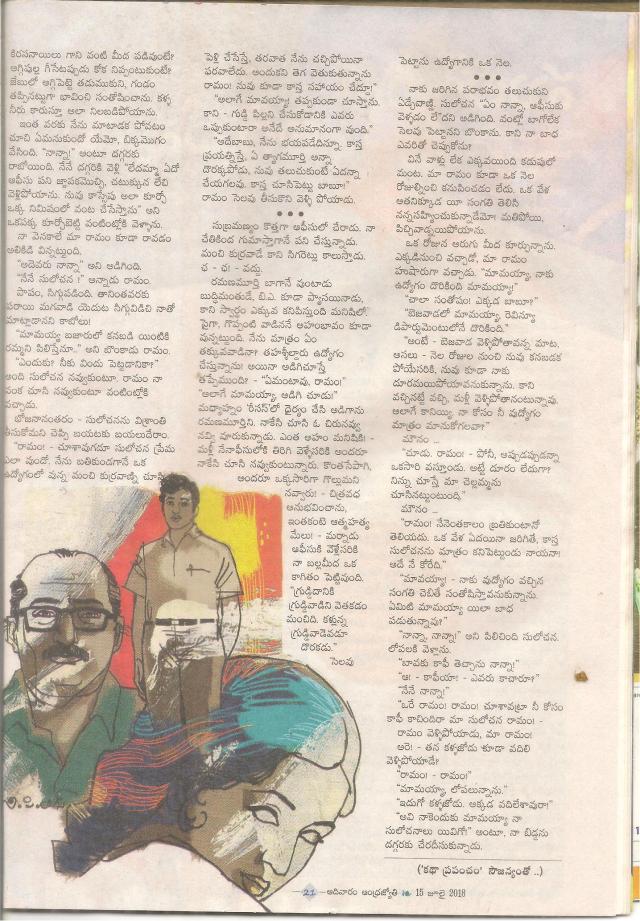 కిరసనాయిలు గాని వంటి మీద పడివుంటే?
అగ్గిపుల్ల గీసేటప్పుడు కోక నిప్పంటుకుంటే?
జేబులో అగ్గిపెట్టె తడుముకుని, గండం
తప్పినట్లుగా భావించి సంతోషించాను. కళ్ళ
నీరు కారుస్తూ అలా నిలబడిపోయాను.
ఇంత వరకు నేను మాటాడక పోవటం
చూచి ఏమనుకుందో యేమో, బిక్కమొగం
వేసింది. "నాన్నా!" అంటూ దగ్గరకు
రాబోయింది. నేనే దగ్గరికి వెళ్లి "లేదమ్మా ఏదో
ఆఫీసు పని జ్ఞాపకమొచ్చి, చటుక్కున లేచి
వెళ్లిపోయాను. నువు కాస్సేపు అలా కూర్చో
ఒక్క నిమిషంలో వంట చేసేస్తాను" అని
ఒకపక్క కూర్చోబెట్టి వంటింట్లోకి వెళ్లాను.
నా వెనకాలే మా రామం కూడా రావడం
అలికిడి విన్నట్టుంది.
"అదెవరు నాన్నా" అని అడిగింది.
"నేనే సులోచన !" అన్నాడు రామం.
పాపం, సిగ్గుపడింది. తానింతవరకు
పరాయి మగవాడి యెదుట సిగ్గువిడిచి నాతో
మాట్లాడానని కాబోలు!
"మామయ్య బజారులో కనబడి యింటికి
రమ్మని పిలిస్తేనూ.." అని బొంకాడు రామం.
"ఎందుకు? నీకు విందు పెట్టడానికా?"
అంది సులోచన నవ్వుకుంటూ. రామం నా
వంక చూసి నవ్వుకుంటూ వంటింట్లోకి
వచ్చాడు.
భోజనానంతరం - సులోచనను విశ్రాంతి
తీసుకోమని చెప్పి బయటకు బయలుదేరాం.
"రామం! - చూశావుగదూ సులోచన ప్రేమ
ఎలా వుందో. నేను బతికుండగానే ఒక
ఉద్యోగంలో వున్న మంచి కుర్రవాణ్ణి చూసి
పెళ్లి చేసేస్తే, తరవాత నేను చచ్చిపోయినా
ఫరవాలేదు. అందుకని తెగ వెతుకుతున్నాను
రామం! నువు కూడా కాస్త సహాయం చేద్దూ!"
"అలాగే మామయ్యా! తప్పకుండా చూస్తాను.
కాని - గుడ్డి పిల్లని చేసుకోడానికి ఎవరు
ఒప్పుకుంటారా అనేదే అనుమానంగా వుంది."
"అదేబాబు, నేను భయపడేదిన్నూ. కాస్త
ప్రయత్నిస్తే, ఏ త్యాగమూర్తి అన్నా
దొరక్కపోడు, నువు తలుచుకుంటే ఏదన్నా
చేయగలవు. కాస్త చూసిపెట్టు బాబూ!"
రామం సెలవు తీసుకొని వెళ్ళి పోయాడు.
•••
సుబ్రమణ్యం కొత్తగా ఆఫీసులో చేరాడు. నా
చేతికింద గుమాస్తాగానే పని చేస్తున్నాడు.
మంచి కుర్రవాడే కాని సిగరెట్లు కాలుస్తాడు.
ఛ - ఛ - వద్దు.
రమణమూర్తి బాగానే వుంటాడు
బుద్ధిమంతుడే, బి.ఎ. కూడా ప్యాసయినాడు,
కాని స్వార్థం ఎక్కువ కనిపిస్తుంది మనిషిలో.
పైగా, గొప్పింటి వాడిననే అహంభావం కూడా
వున్నట్టుంది. నేను మాత్రం ఏం
తక్కువవాడినా? తహశ్శీల్దారు ఉద్యోగం
చేస్తున్నాను! అయినా అడిగిచూస్తే
తప్పేముంది?- "ఏమంటావు, రామం!"
"అలాగే మామయ్యా, అడిగి చూడు!"
మధ్యాహ్నం 'రీసస్'లో ధైర్యం చేసి అడగాను
రమణమూర్తిని. నాకేసి చూసి ఓ చిరునవ్వు
నవ్వి వూరుకున్నాడు. ఎంత అహం మనిషికి! -
మళ్లీ నేనాఫీసులోకి తిరిగి వెళ్ళేసరికి అందరూ
నాకేసి చూసి నవ్వుకుంటున్నారు. కొంతసేపాగి,
అందరూ ఒక్కసారిగా గొల్లుమని
నవ్వారు! - చిత్రవధ
అనుభవించాను,
ఇంతకంటె ఆత్మహత్య
మేలు! - మర్నాడు
ఆఫీసుకి వెళ్లేసరికి
నా బల్లమీద ఒక
కాగితం పెట్టివుంది.
"గ్రుడ్డిదానికి
గ్రుడ్డివాడిని వెతకడం
మంచిది. కళ్లున్న
గ్రుడ్డివాడెవడూ
దొరకడు."
సెలవు
పెట్టాను ఉద్యోగానికి ఒక నెల.
•••
నాకు జరిగిన పరాభవం తలుచుకుని
ఏడ్చేవాణ్ణి. సులోచన "ఏం నాన్నా, ఆఫీసుకు
వెళ్ళడం లేదా"ని అడిగింది. వంట్లో బాగోలేక
సెలవు పెట్టానని బొంకాను. కాని నా బాధ
ఎవరితో చెప్పుకోను?
వినే వాళ్లు లేక ఎక్కవయింది కడుపులో
మంట. మా రామం కూడా ఒక నెల
రోజుల్నించి కనుపించడం లేదు. ఒక వేళ
అతనిక్కూడ యీ సంగతి తెలిసి
నన్నసహ్యించుకున్నాడేమో! మతిపోయి,
పిచ్చివాడ్నయిపోయాను.
ఒక రోజున అరుగు మీద కూర్చున్నాను.
ఎక్కడినుంచి వచ్చాడో, మా రామం
హుషారుగా వచ్చాడు. "మామయ్యా, నాకు
ఉద్యోగం దొరికింది మామయ్యా!"
"చాలా సంతోషం! ఎక్కడ బాబూ?"
"బెజవాడలో మామయ్యా, రెవిన్యూ
డిపార్టుమెంటులోనే దొరికింది."
"అంటే - బెజవాడ వెళ్ళిపోతావన్న మాట.
అసలు - నెల రోజుల నుంచి నువు కనబడక
పోయేసరికి, నువు కూడా నాకు
దూరమయిపోయావనుకున్నాను. కాని
వచ్చినట్టే వచ్చి, మళ్లీ వెళ్లిపోతానంటున్నావు.
అలాగే కానియ్యి. నా కోసం నీ వుద్యోగం
మాత్రం మానుకోగలవా?"
మౌనం ...
"చూడు. రామం! - పోనీ, అప్పుడప్పుడన్నా
ఒకసారి వస్తూండు. అట్టే దూరం లేదుగా?
నిన్ను చూస్తే మా చెల్లమ్మను
చూసినట్టుంటుంది."
మౌనం ...
"రామం! నేనెంతకాలం బ్రతికుంటానో
తెలియదు. ఒక వేళ ఏదయినా జరిగితే, కాస్త
సులోచనను మాత్రం కనిపెట్టుండు నాయనా!
అదే నే కోరేది."
"మావయ్యా! - నాకు వుద్యోగం వచ్చిన
సంగతి చెబితే సంతోషిస్తావనుకున్నాను.
ఏమిటి మామయ్యా యిలా బాధ
పడుతున్నావు?"
"నాన్నా, నాన్నా!" అని పిలిచింది సులోచన.
లోపలకి వెళ్లాను.
"బావకు కాఫీ తెచ్చాను నాన్నా!"
"ఆ! - కాఫీయా! - ఎవరు కాచారూ?"
"నేనే నాన్నా!"
"ఒరే రామం! రామం! చూశావట్రా నీ కోసం
కాఫీ కాచిందిరా మా సులోచన రామం! -
రామం వెళ్ళిపోయాడు, మా రామం!
అరె! - తన కళ్ళజోడు కూడా వదిలి
వెళ్ళిపోయాడే?
"రామం! - రామం!"
"మామయ్యా, లోపలున్నాను."
"ఇదుగో కళ్ళజోడు. అక్కడ వదిలేశావురా!"
"అవి నాకెందుకు మామయ్యా నా
సులోచనాలు యివిగో!" అంటూ, నా బిడ్డను
దగ్గరకు చేరదీసుకున్నాడు.
('కథా ప్రపంచం' సౌజన్యంతో ..)
21 ఆదివారం ఆంధ్రజ్యోతి 15 జూలై 2018